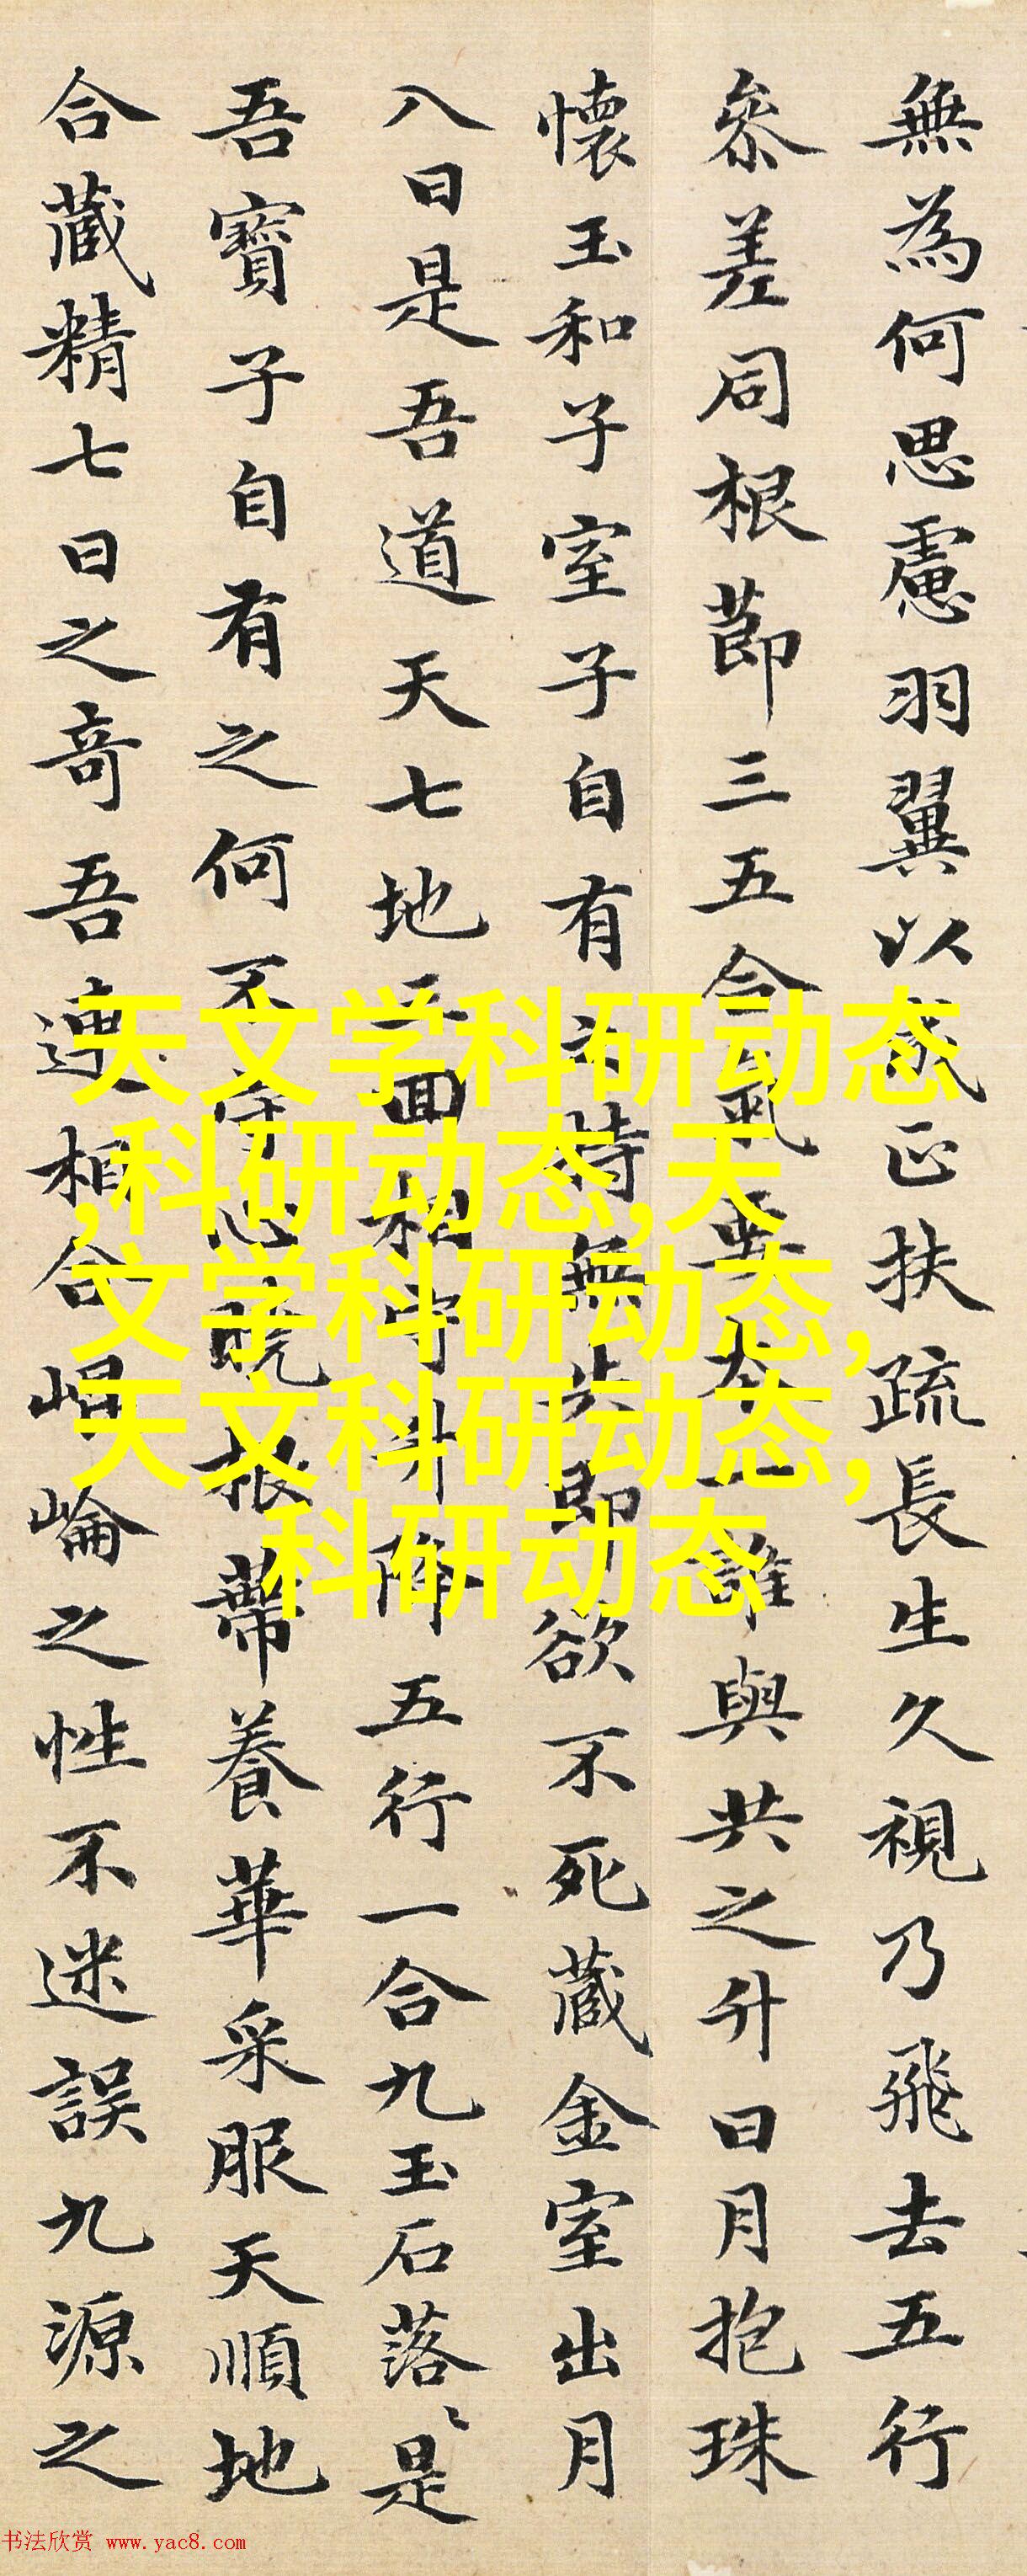 無為何思慮羽翼以成正扶疏長生久視乃飛去五行
參差同根莭三五合氣要本一誰與共之升日月抱珠
懷玉和子室子自有之持無失即欲不死藏金室出月
入日是吾道天七地三回相守升降五行一合九玉石落〻是
吾寶子自有之何不守心曉根蔕養華采服天順地
合藏精七日之竒吾連相合崐崘之性不迷誤九源之
天文学科研动态
,科研动态,天
文学科研动态,
天文科研动态,
科研动态
书法欣赏 www.yac8.com